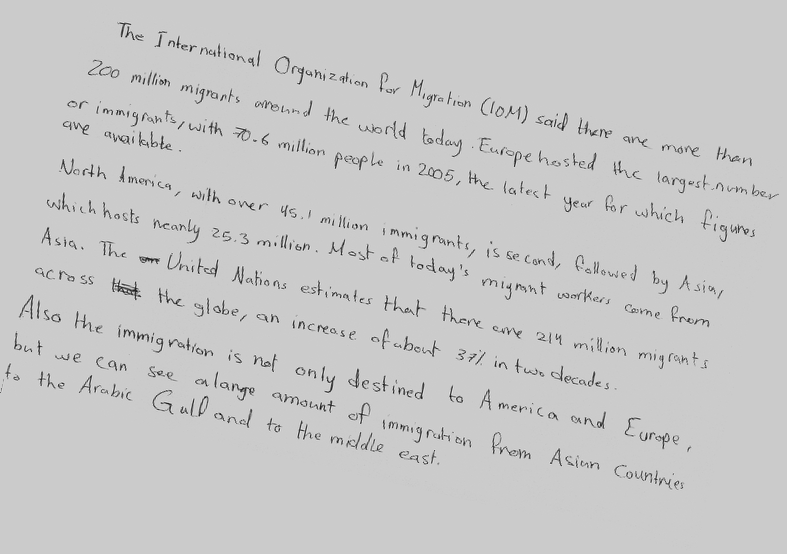 The International Organization for Migration (IOM) said there are more than
200 million migrants around the world today. Europe hosted the largest number
or immigrants, with 70.6 million people in 2005, the latest year for which figures
are available.
North America, with over 45.1 million immigrants, is second, followed by Asia,
which hosts nearly 25.3 million. Most of today's migrant workers come from
Asia. The United Nations estimates that there are 214 million migrants
across the globe, an increase of about 37% in two decades.
Also the immigration is not only destined to America and Europe,
but we can see a large amount of immigration from Asian Countries
to the Arabic Gulf and to the middle east.